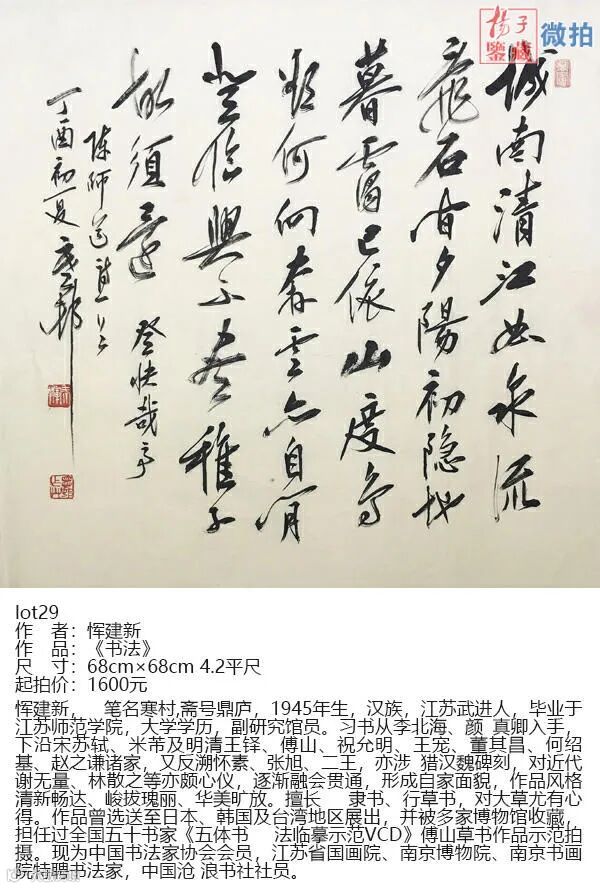 揚子
鑒藏
微拍
城南清江曲泉流
乱石间夕陽初隐地
暮霭已依山度鸟
欲何向奔雲亦自闲
登临興不尽稚子
故须還 登快哉亭
陈师道诗一首
丁酉初夏 寒邨
lot29
作 者：恽建新
作 品：《书法》
尺 寸：68cm×68cm 4.2平尺
起拍价：1600元
恽建新， 笔名寒村,斋号鼎庐，1945年生，汉族，江苏武进人，毕业于
江苏师范学院，大学学历，副研究馆员。习书从李北海、颜 真卿入手，
下沿宋苏轼、米芾及明清王铎、傅山、祝允明、王宠、董其昌、何绍
基、赵之谦诸家，又反溯怀素、张旭、二王，亦涉 猎汉魏碑刻，对近代
谢无量、林散之等亦颇心仪，逐渐融会贯通，形成自家面貌，作品风格
清新畅达、峻拔瑰丽、华美旷放。擅长 隶书、行草书，对大草尤有心
得。作品曾选送至日本、韩国及台湾地区展出，并被多家博物馆收藏，
担任过全国五十书家《五体书 法临摹示范VCD》傅山草书作品示范拍
摄。现为中国书法家协会会员，江苏省国画院、南京博物院、南京书画
院特聘书法家，中国沧 浪书社社员。